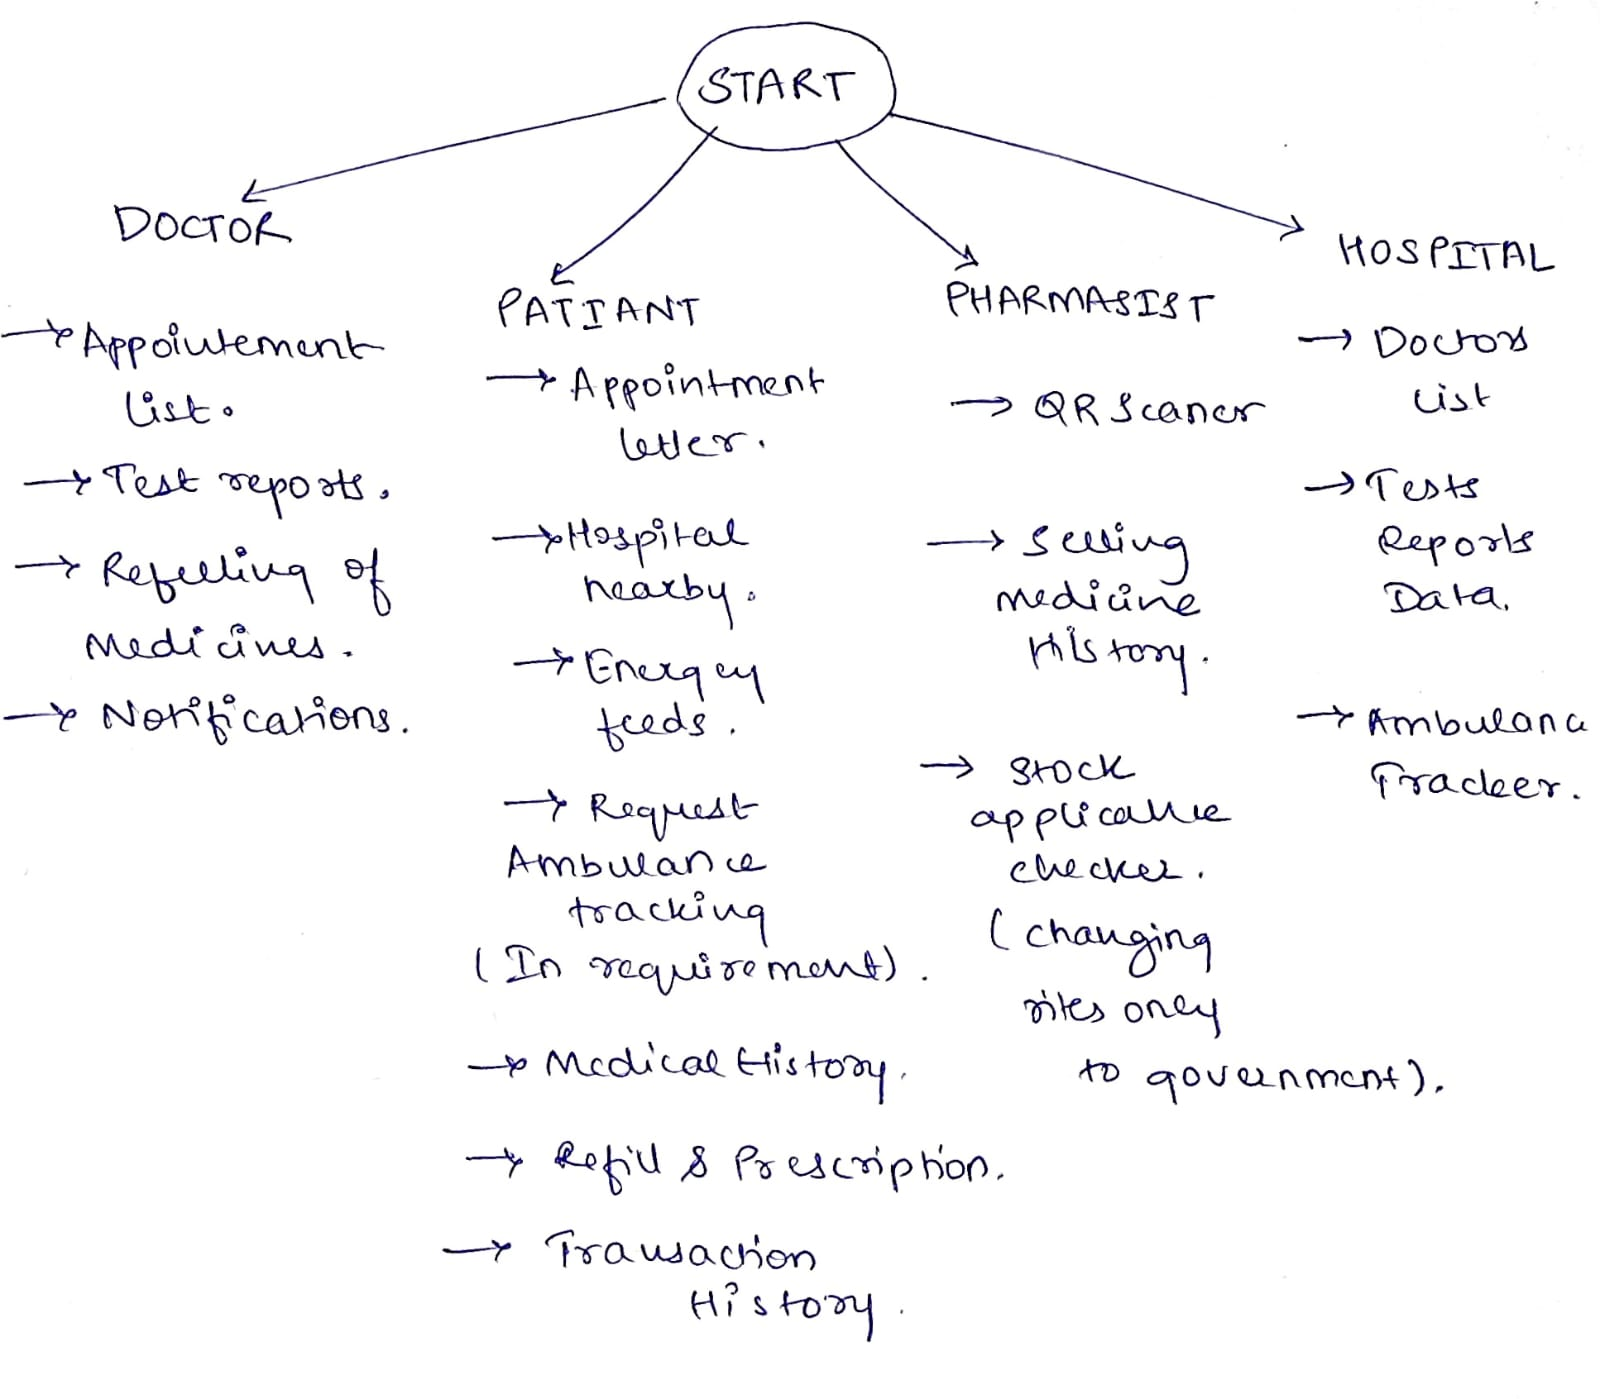 START
DOCTOR
→ Appointement
list.
→ Test reports.
→ Refelling of
Medicines.
→ Notifications.
PATIANT
→ Appointment
letter.
→ Hospital
nearby.
→ Energey
feeds.
→ Request
Ambulance
tracking
(In requirement).
→ Medical History.
→ Refill & Prescription.
→ Transaction
History.
PHARMASIST
→ QR Scaner
→ Selling
medicine
History.
→ Stock
applicable
checker.
(changing
rites only
to government).
HOSPITAL
→ Doctors
list
→ Tests
Reports
Data.
→ Ambulance
Tracker.